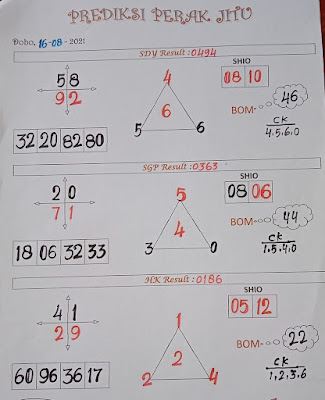 PREDIKSI PERAK JITU
Dobo, 16-08-2021
SDY Result : 0494
5 8
9 2
4
6
5 6
SHIO
08 10
BOM 46
CK
4.5.6.0
32 20 82 80
SGP Result : 0363
2 0
7 1
5
4
3 0
SHIO
08 06
BOM 44
CK
1.5.4.0
18 06 32 33
HK Result : 0186
4 1
2 9
1
2
2 4
SHIO
05 12
BOM 22
CK
1,2,3.6
60 96 36 17